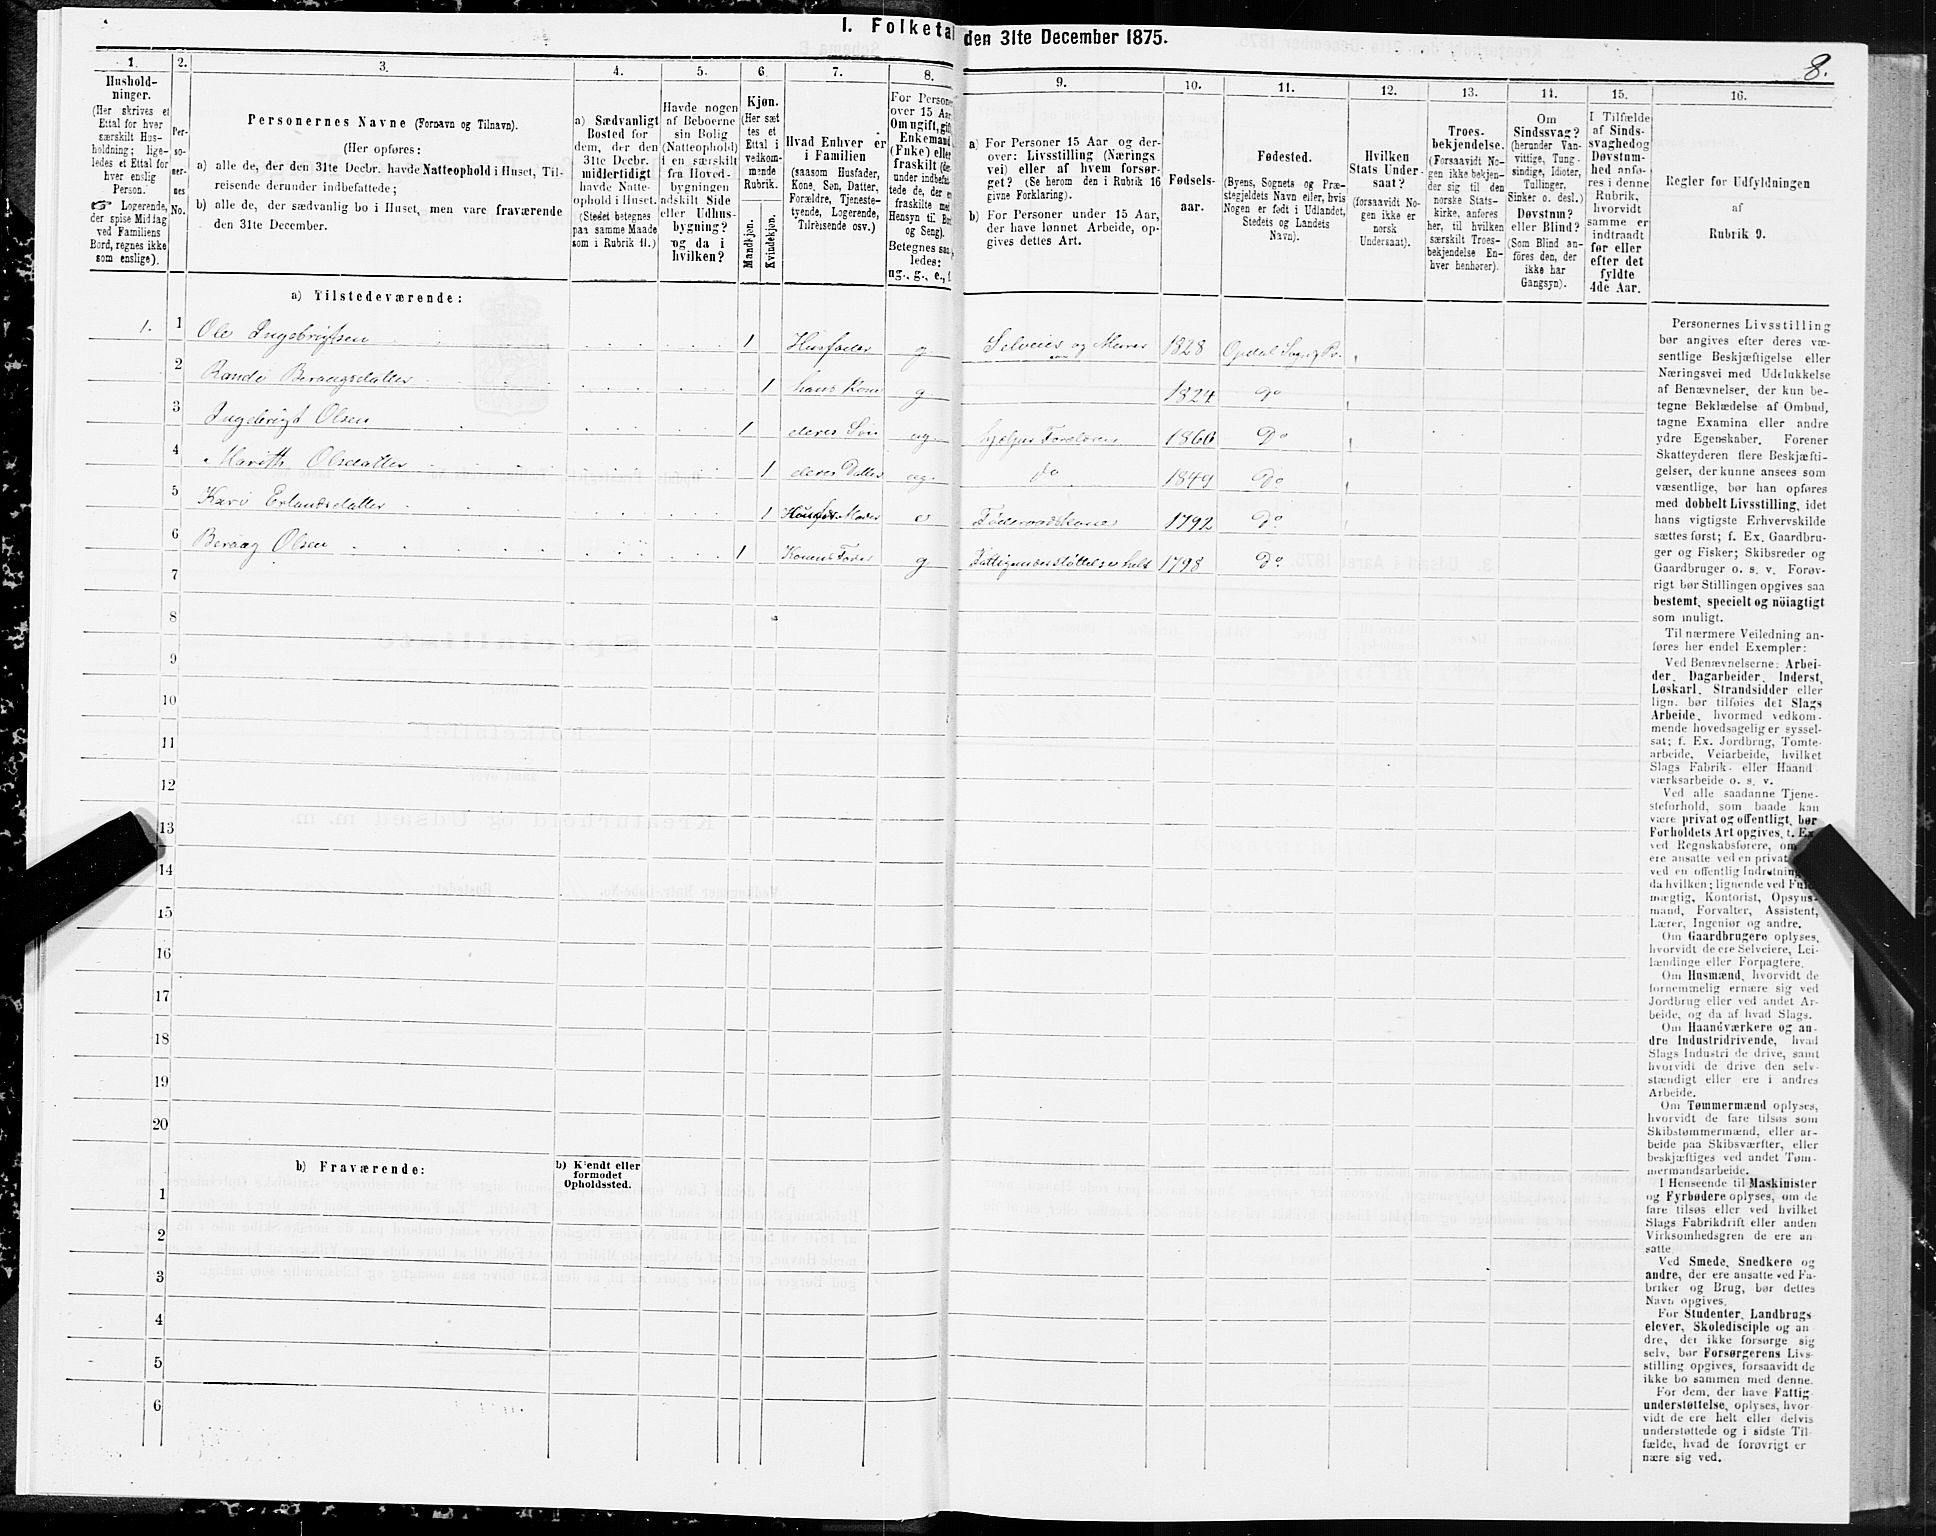 I. Folketal den 31te December 1875.
8.
1.
Hushold-
ninger.
(Her skrives et
Ettal for hver
særskilt Hus-
holdning; lige-
ledes et Ettal for
hver enslig
Person.
☞ Logerende,
der spise Middag
ved Familiens
Bord, regnes ikke
som enslige).
2.
Per-
so-
ner-
nes
No.
3.
Personernes Navne (Fornavn og Tilnavn).
(Her opføres:
a) alle de, der den 31te Decbr. havde Natteophold i Huset, Til-
reisende derunder indbefattede;
b) alle de, der sædvanlig bo i Huset, men vare fraværende
den 31te December.
4.
a) Sædvanligt
Bosted for
dem, der den
31te Decbr.
midlertidigt
havde Natte-
ophold i Huset.
(Stedet betegnes
paa samme Maade
som i Rubrik 11.)
5.
Havde nogen
af Beboerne
sin Bolig
(Natteophold)
i en særskilt
fra Hoved-
bygningen
adskilt Side
eller Udhus-
bygning?
og da i
hvilken?
6.
Kjøn.
(Her sæt
tes et
Ettal i
vedkom-
mende
Rubrik.
Mandkjøn.
Kvindekjøn.
7.
Hvad Enhver er
i Familien
(saasom Husfader,
Kone, Søn, Datter,
Forældre, Tjeneste-
tyende, Logerende,
Tilreisende osv.)
8.
For Personer
over 15 Aar:
Om ugift, gift,
Enkemand
(Enke) eller
fraskilt (der-
under indbefat-
tede de, der ere
fraskilte med
Hensyn til Bord
og Seng).
Betegnes saa-
ledes:
ug., g., e., f.
9.
a) For Personer 15 Aar og der-
over: Livsstilling (Nærings
vei) eller af hvem forsør-
get? (Se herom den i Rubrik 16
givne Forklaring).
b) For Personer under 15 Aar,
der have lønnet Arbeide, op-
gives dettes Art.
10.
Fødsels-
aar.
11.
Fødested.
(Byens, Sognets og Præ-
stegjeldets Navn eller, hvis
Nogen er født i Udlandet,
Stedets og Landets
Navn).
12.
Hvilken
Stats Under-
saat?
(forsaavidt No-
gen ikke er
norsk
Undersaat).
13.
Troes-
bekjendelse.
(Forsaavidt No-
gen ikke bekjen-
der sig til den
norske Stats-
kirke, anføres
her, til hvilken
særskilt Troes-
bekjendelse En-
hver henhører).
14.
Om
Sindssvag?
(herunder Van-
vittige, Tung-
sindige, Idioter,
Tullinger,
Sinker o. desl.)
Døvstum?
eller Blind?
(Som Blind an-
føres den, der
ikke har
Gangsyn).
15.
I Tilfælde
af Sinds-
svaghed og
Døvstum-
hed anfø-
res i denne
Rubrik,
hvorvidt
samme er
indtraadt
før eller
efter det
fyldte
4de Aar.
16.
Regler for Udfyldningen
af
Rubrik 9.
a) Tilstedeværende:
1. 1 Ole Ingebrigtsen 1 Husfader g Selveier og Murer 1828 Opdal Sog. og Pr.
2 Randi Beraagsdatter 1 hans Kone g 1824 Do
3 Ingebrigt Olsen 1 deres Søn ug. hjelper Forældrene 1860 Do
4 Marith Olsdatter 1 deres Datter ug. do 1849 Do
5 Kari Erlandsdatter 1 Husf. Moder e Føderaadskone 1792 Do
6 Beraag Olsen 1 Konens Fader g Fattigunderstøttelse helt 1798 Do.
7
8
9
10
11
12
13
14
15
16
17
18
19
20
b) Fraværende:
b) Kjendt eller
formodet
Opholdssted.
1
2
3
4
5
6
Personernes Livsstilling
bør angives efter deres væ-
sentlige Beskjæftigelse eller
Næringsvei med Udelukkelse
af Benævnelser, der kun be-
tegne Beklædelse af Ombud,
tagne Examina eller andre
ydre Egenskaber. Forener
Skatteyderen flere Beskjæfti-
gelser, der kunne ansees som
væsentlige, bør han opføres
med dobbelt Livsstilling, idet
hans vigtigste Erhvervskilde
sættes først; f. Ex. Gaardbru-
ger og Fisker; Skibsreder og
Gaardbruger o. s. v. Forøv-
rigt bør Stillingen opgives saa
bestemt, specielt og nöiagtigt
som muligt.
Til nærmere Veiledning an-
føres her endel Exempler:
Ved Benævnelserne: Arbei-
der, Dagarbeider, Inderst,
Løskarl, Strandsidder eller
lign. bør tilføies det Slags
Arbeide, hvormed vedkom-
mende hovedsagelig er syssel-
sat; f. Ex. Jordbrug, Tomte-
arbeide, Veiarbeide, hvilket
Slags Fabrik- eller Haand
værksarbeide o. s. v.
Ved alle saadanne Tjene-
steforhold, som baade kan
være privat og offentligt, bør
Forholdets Art opgives, t. Ex.
ved Regnskabsførere, om
ere ansatte ved en privat
ved en offentlig Indretning
da hvilken; lignende ved Fuld-
mægtig, Kontorist, Opsyns-
mand, Forvalter, Assistent,
Lærer, Ingeniør og andre.
Om Gaardbrugere oplyses,
hvorvidt de ere Selveiere, Lei-
lændinge eller Forpagtere.
Om Husmænd, hvorvidt de
fornemmelig ernære sig ved
Jordbrug eller ved andet Ar-
beide, og da af hvad Slags.
Om Haandværkere og an-
dre Industridrivende, hvad
Slags Industri de drive, samt
hvorvidt de drive den selv-
stændigt eller ere i andres
Arbeide.
Om Tømmermænd oplyses,
hvorvidt de fare tilsøs som
Skibstømmermænd, eller ar-
beide paa Skibsværfter, eller
beskjæftiges ved andet Tøm-
mermandsarbeide.
I Henseende til Maskinister
og Fyrbødere oplyses, om de
fare tilsøs eller ved hvilket
Slags Fabrikdrift eller anden
Virksomhedsgren de ere an-
satte.
Ved Smede, Snedkere og
andre, der ere ansatte ved Fa-
briker og Brug, bør dettes
Navn opgives.
For Studenter, Landbrugs
elever, Skoledisciple og an
dre, der ikke forsørge sig
selv, bør Forsørgerens Livs-
stilling opgives, forsaavidt de
ikke bo sammen med denne.
For dem, der have Fattig
understøttelse, oplyses, hvor-
vidt de ere helt eller delvis
understøttede og i sidste Til-
fælde, hvad de forøvrigt er
nære sig ved.